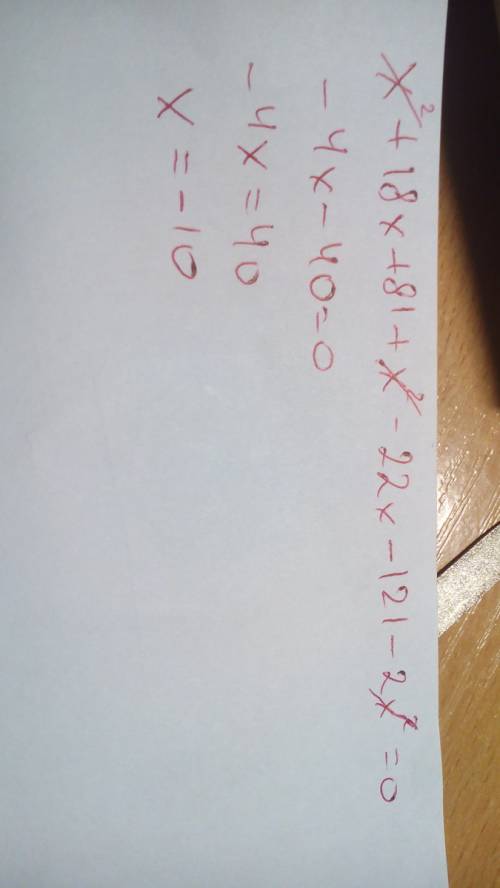 x² + 18x + 81 + x² - 22x - 121 - 2x² = 0
- 4x - 40 = 0
- 4x = 40
x = - 10